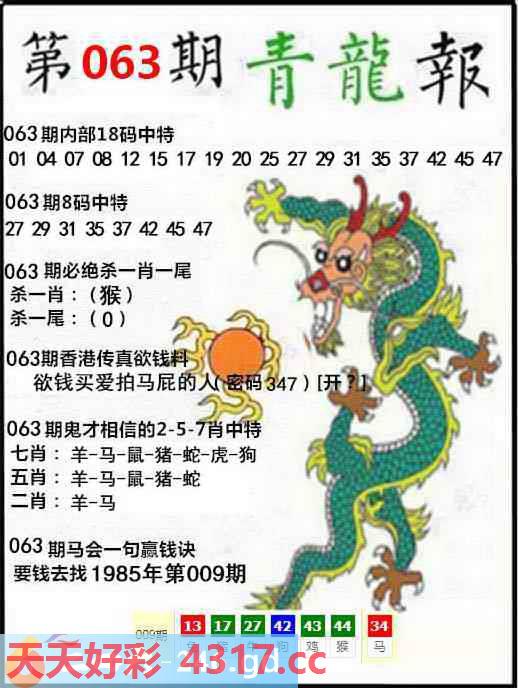 第063期青龍報
063期内部18码中特
01 04 07 08 12 15 17 19 20 25 27 29 31 35 37 42 45 47
063期8码中特
27 29 31 35 37 42 45 47
063期必绝杀一肖一尾
杀一肖：（猴）
杀一尾：（0）
063期香港传真欲钱料
欲钱买爱拍马屁的人(密码347)[开？]
063期鬼才相信的2-5-7肖中特
七肖：羊-马-鼠-猪-蛇-虎-狗
五肖：羊-马-鼠-猪-蛇
二肖：羊-马
063期马会一句赢钱诀
要钱去找1985年第009期
13 17 27 42 43 44 34
009期 狗 鸡 猴 马
天天好彩 4317.cc